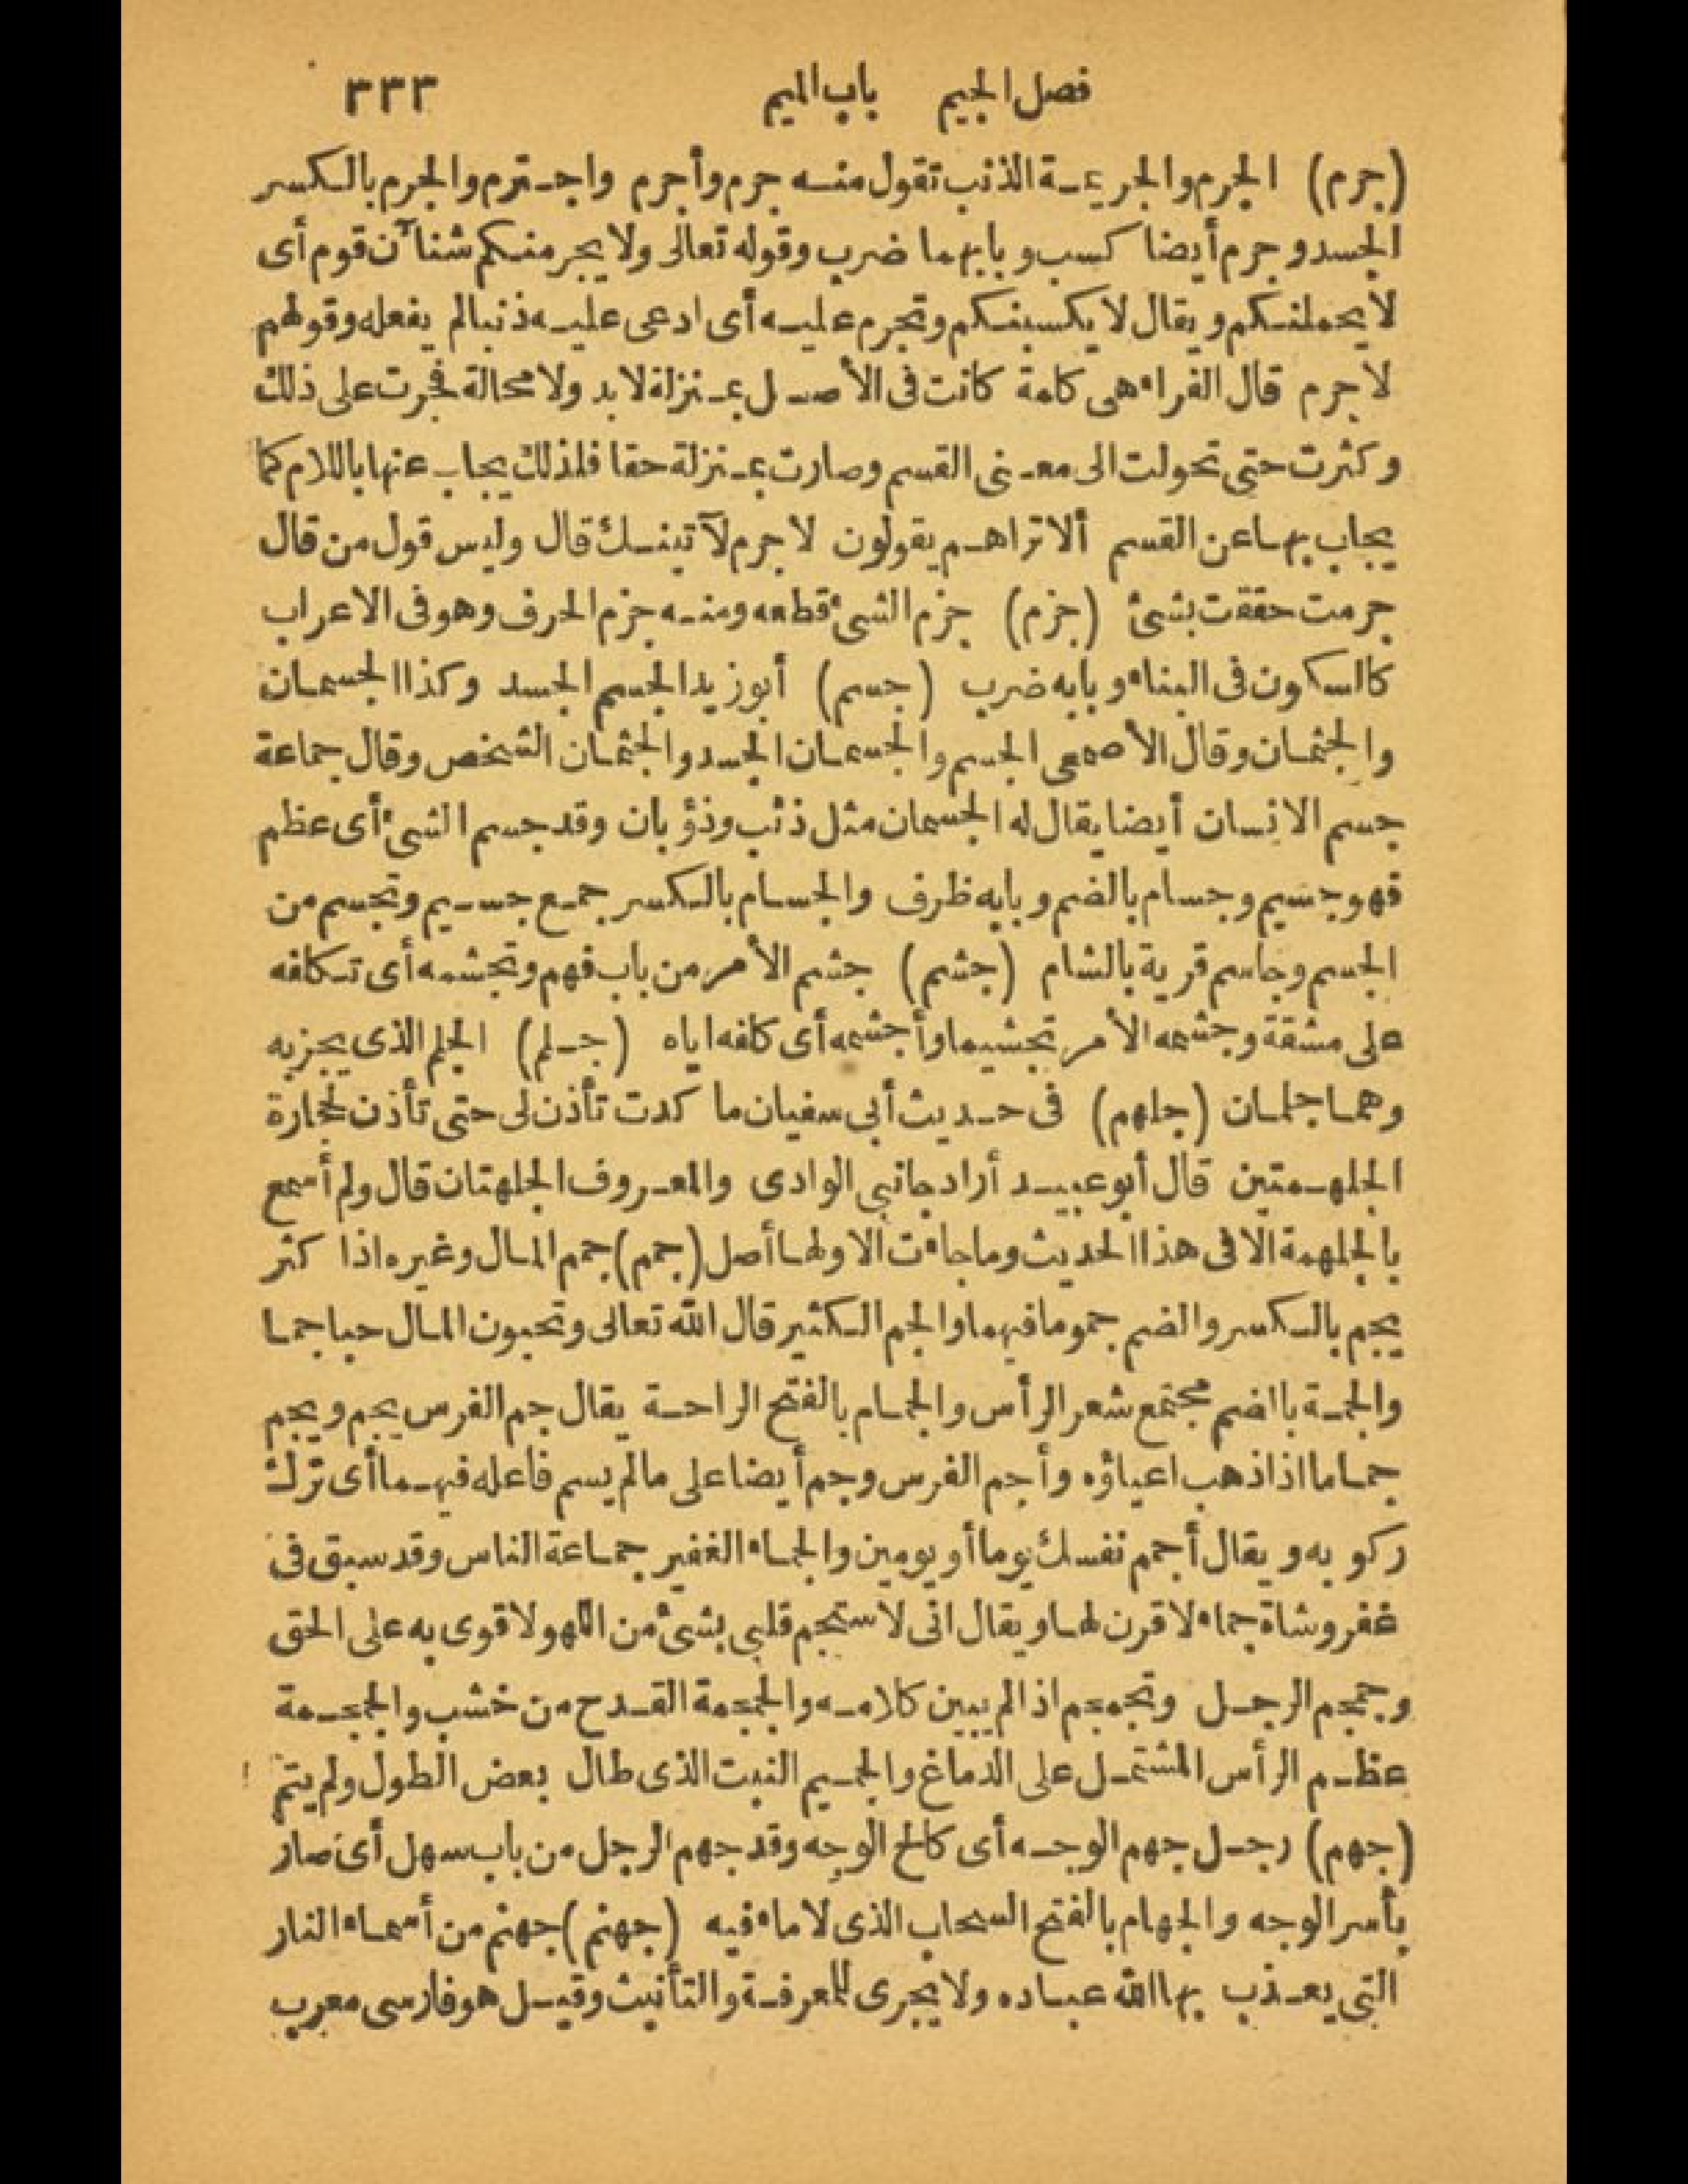 فصل الجيم باب الميم ٣٣٣
(جرم) الجرم والجريمة الذنب تقول منه جرم وأجرم واجترم والجرم بالكسر
الجسد وجرم أيضا كسب وبابهما ضرب وقوله تعالى ولا يجرمنكم شنا آن قوم أى
لا يحملنكم ويقال لا يكسبنكم وتجرم عليه أى ادعى عليه ذنبا لم يفعله وقولهم
لا جرم قال الفراء هى كلمة كانت فى الأصل بمنزلة لا بد ولا محالة فجرت على ذلك
وكثرت حتى تحولت الى معنى القسم وصارت بمنزلة حقا فلذلك يجاب عنها باللام كما
يجاب بها عن القسم ألا تراهم يقولون لا جرم لآتينك قال وليس قول من قال
جرمت حققت بشئ (جزم) جزم الشئ قطعه ومنه جزم الحرف وهو فى الاعراب
كالسكون فى البناء وبابه ضرب (جسم) أبو زيد الجسم الجسد وكذا الجسمان
والجثمان وقال الأصمعى الجسم والجسمان الجسد والجثمان الشخص وقال جماعة
جسم الانسان أيضا يقال له الجسمان مثل ذئب وذؤبان وقد جسم الشئ أى عظم
فهو جسيم وجسام بالضم وبابه ظرف والجسام بالكسر جمع جسيم وتجسم من
الجسم وجاسم قرية بالشام (جشم) جشم الأمر من باب فهم وتجشمه أى تكلفه
على مشقة وجشمه الأمر تجشيما وأجشمه أى كلفه اياه (جلم) الجلم الذى يجز به
وهما جلمان (جلهم) فى حديث أبى سفيان ما كدت تأذن لى حتى تأذن لحجارة
الجلهمتين قال أبو عبيد أراد جانبى الوادى والمعروف الجلهتان قال ولم أسمع
بالجلهمة الا فى هذا الحديث وما جاءت الا ولها أصل (جمم) جمم المال وغيره اذا كثر
يجم بالكسر والضم جموما فيهما والجم الكثير قال الله تعالى وتحبون المال حبا جما
والجمة بالضم مجتمع شعر الرأس والجمام بالفتح الراحة يقال جم الفرس يجم ويجم
جماما اذا ذهب اعياؤه وأجم الفرس وجم أيضا على ما لم يسم فاعله فيهما أى ترك
ركوبه ويقال أجمم نفسك يوما أو يومين والجماء الغفير جماعة الناس وقد سبق فى
غفر وشاة جماء لا قرن لها ويقال انى لاستجم قلبى بشئ من اللهو لاقوى به على الحق
وجمجم الرجل وتجمجم اذا لم يبين كلامه والجمجمة القدح من خشب والجمجمة
عظم الرأس المشتمل على الدماغ والجميم النبت الذى طال بعض الطول ولم يتم
(جهم) رجل جهم الوجه أى كالح الوجه وقد جهم الرجل من باب سهل أى صار
بأسر الوجه والجهام بالفتح السحاب الذى لا ماء فيه (جهنم) جهنم من أسماء النار
التى يعذب بها الله عباده ولا يجرى للمعرفة والتأنيث وقيل هو فارسى معرب